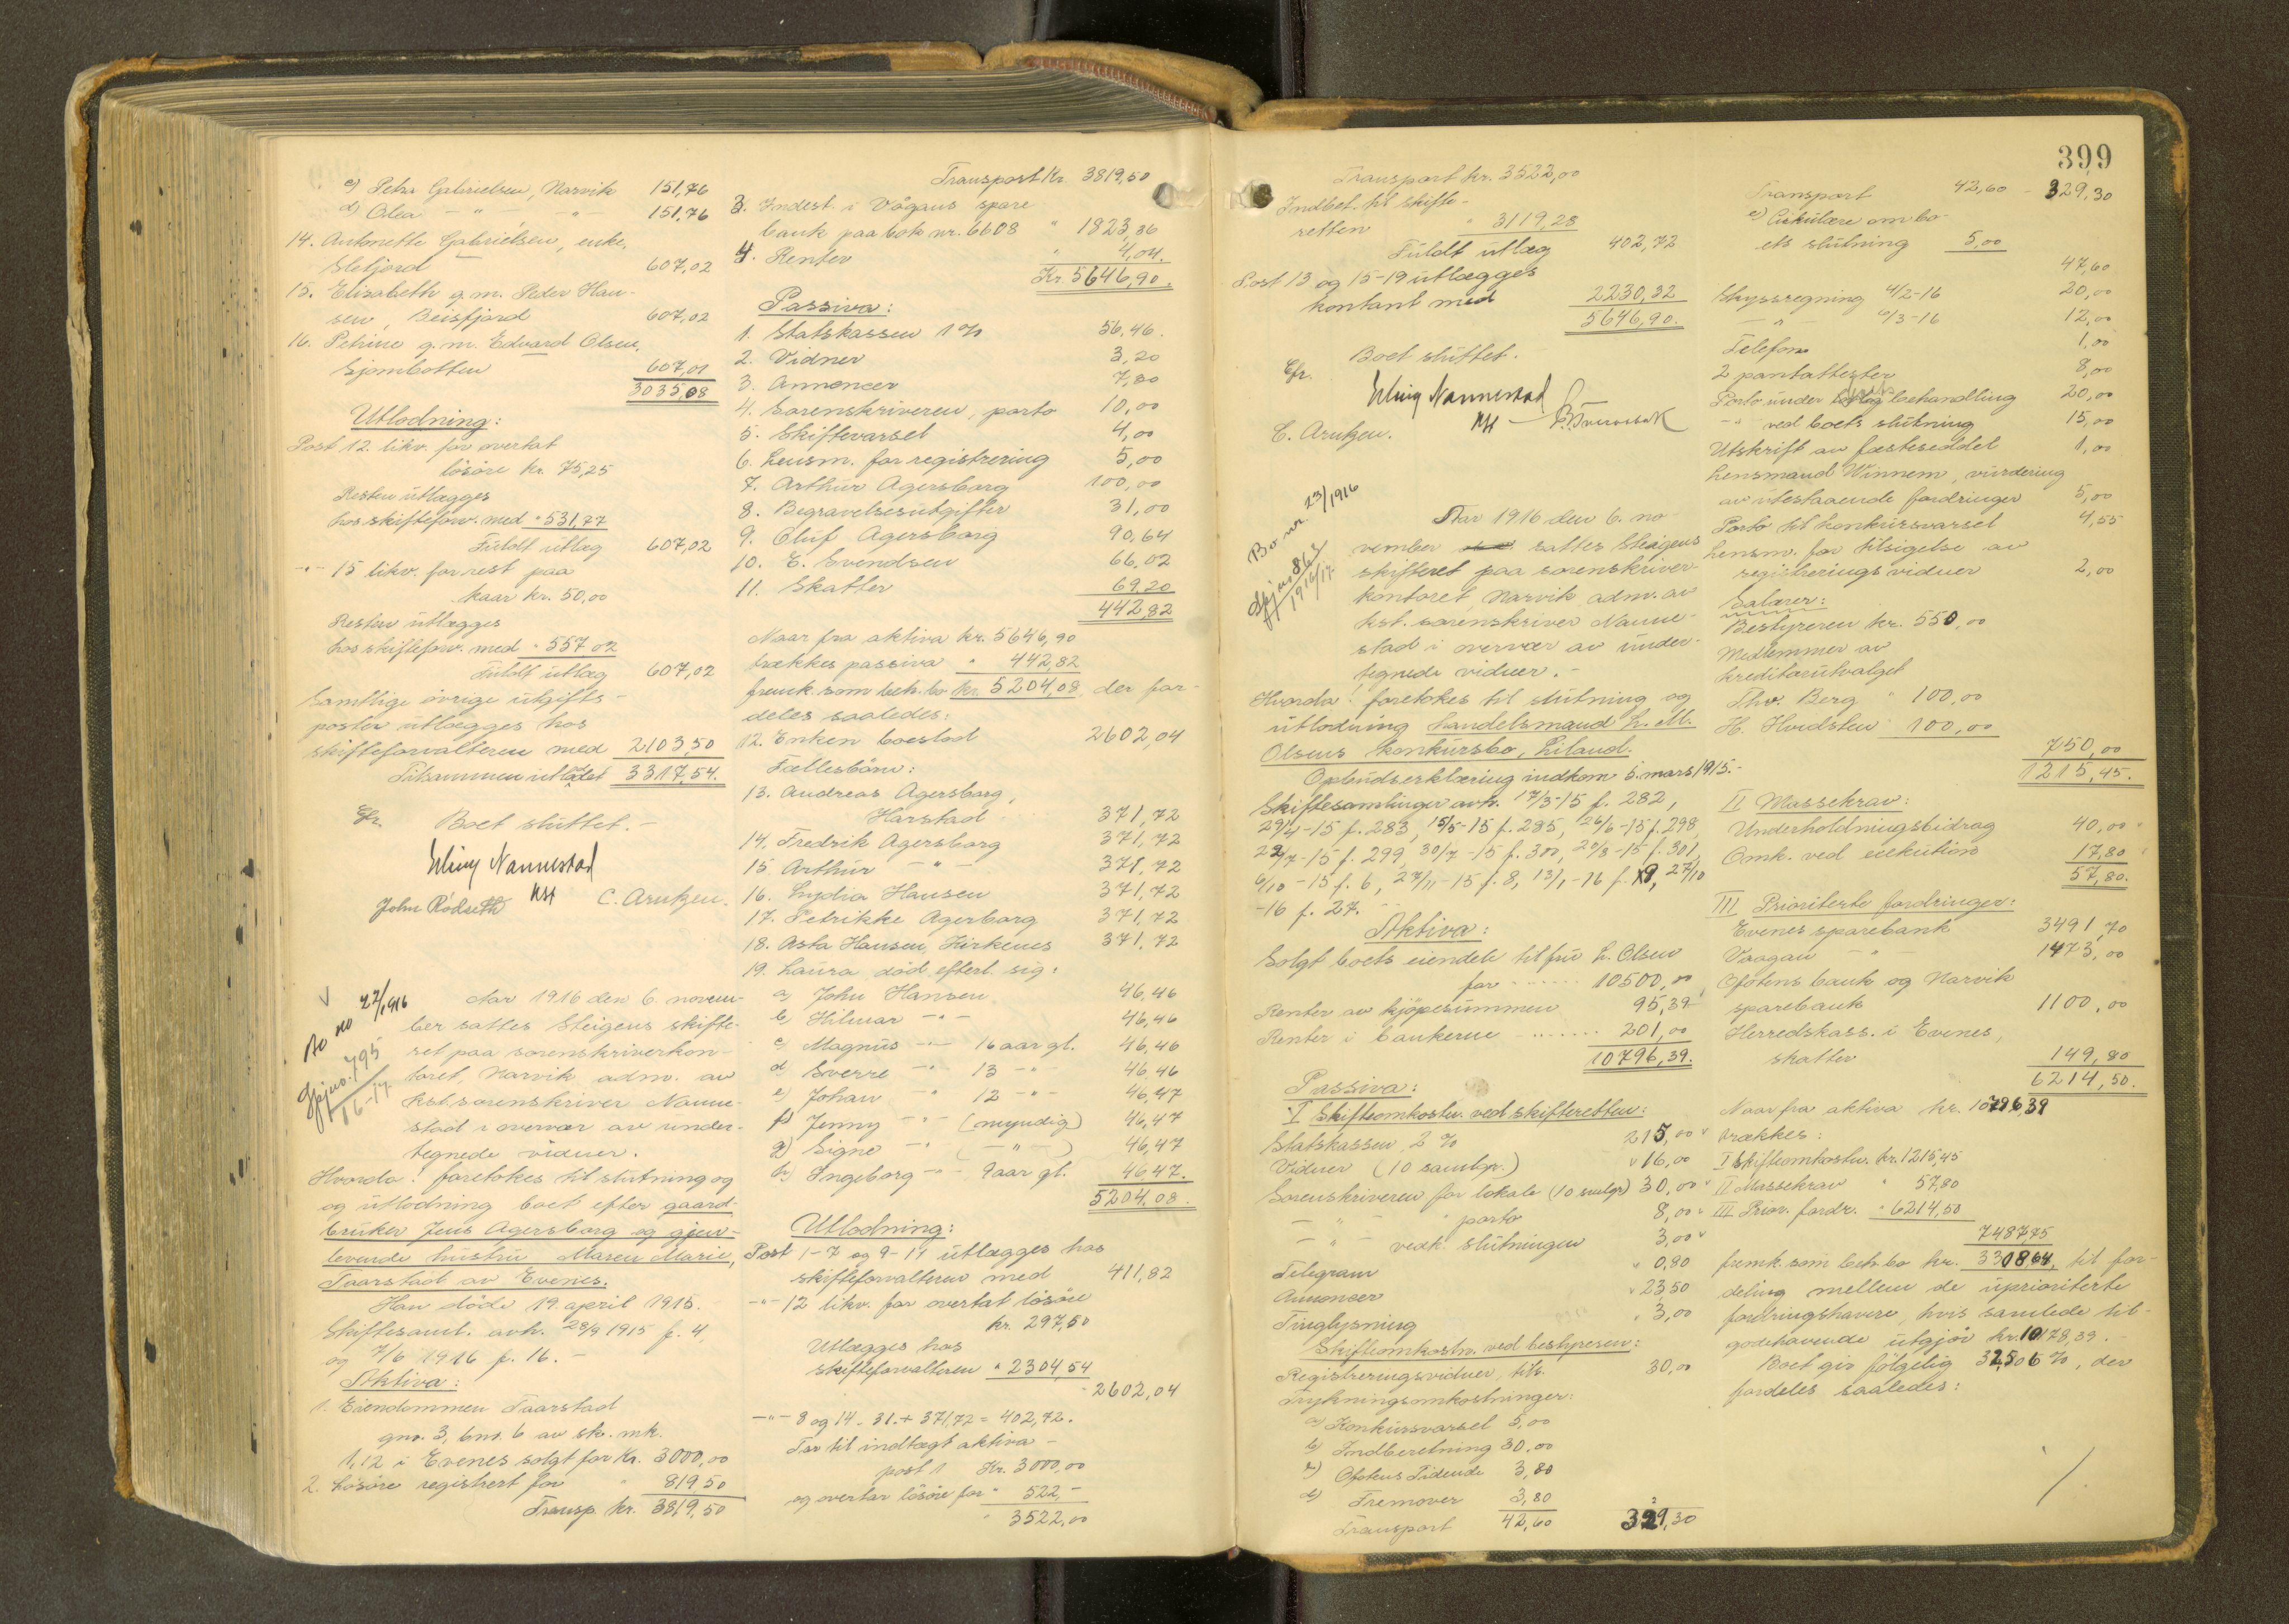 c) Petra Gabrielsen, Narvik 151,76
d) Olea - " - - " - 151,76
14. Antonette Gabrielsen, enke,
Slefjord 607,02
15. Elizabeth g. m. Peder Han-
sen, Beisfjord 607,02
16. Petrine g. m. Edvard Olsen,
Sjombotten 607,01
3035,08
Utlodning:
Post 12. likv. for overtat
lösöre kr. 75,25
Resten utlægges
hos skifteforv. med " 531,77
Fuldt utlæg 607,02
- " - 15 likv. for rest paa
kaar kr. 50,00
Resten utlægges
hos skifteforv. med " 557,02
Fuldt utlæg 607,02
Samtlige övrige utgifts-
poster utlægges hos
skifteforvalteren med 2103,50
Tilsammen utlodet 3317,54.
Boet sluttet.-
Erling Nannestad
kst
John Rödseth C. Arntzen.
Bo no 22/1916
Gjp.no. 795
16-17.
Aar 1916 den 6. novem-
ber sattes Steigens skifte-
ret paa sorenskriverkon-
toret, Narvik adm. av
kst. sorenskriver Nanne-
stad i overvær av under-
tegnede vidner.
Hvorda! foretokes til slutning og
og utlodning boet efter gaard-
bruker Jens Agersborg og gjen-
levende hustru Maren Marie,
Taarstad av Evenes.
Han döde 19. april 1915.
Skiftesaml. avh. 28/9 1915 f. 4,
og 7/6 1916 f. 16.-
Aktiva:
1. Eiendommen Taarstad
gno. 3, bno. 6 av sk. mk.
1,12 i Evenes solgt for kr. 3000,00
2. Lösöre registrert for " 819,50
Transp. kr. 3819,50
Transport kr. 3819,50
3. Indest. i Vågans spare
bank paa bok nr. 6608 " 1823,36
4. Renter " 4,04.
Kr. 5646,90.
Passiva:
1. Statskassen 1 % 56,46.
2. Vidner 3,20
3. Annoncer 7,80
4. Sorenskriveren, porto 10,00
5. Skiftevarsel 4,00
6. Lensm. for registrering 5,00
7. Arthur Agersborg 100,00
8. Begravelsesutgifter 31,00
9. Oluf Agersborg 90,64
10. E. Evendsen 66,02
11. Skatter 69,20
442,82
Naar fra aktiva kr. 5646,90
trækkes passiva " 442,82
fremk. som beh. bo kr. 5204,08, der for-
deles saaledes:
12. Enken boeslod 2602,04
Fællesbörn:
13. Andreas Agersborg,
Harstad 371,72
14. Fredrik Agersborg 371,72
15. Arthur - " - 371,72
16. Lydia Hansen 371,72
17. Petrikke Agerborg 371,72
18. Asta Hansen, Kirkenes 371,72
19. Laura död, efterl. sig:
a) John Hansen 46,46
b) Hilmar - " - 46,46
c) Magnus - " - 16 aar gl. 46,46
d) Sverre - " - 13 - " - 46,46
e) Johan - " 12 - " - 46,47
f) Jenny - " - (myndig) 46,47
g) Signe - " ( - " - ) 46,47
h) Ingeborg - " - 9 aar gl. 46,47.
5204,08.
Utlodning:
Post 1-7 og 9-11 utlægges hos
skifteforvalteren med 411,82
- " - 12 likv. for overtat lösöre
kr. 297,50
Utlægges hos
skifteforvalteren " 2304,54
2602,04
- " - 8 og 14. 31.+ 371,72 = 402,72.
Før til indtægt aktiva -
post 1 Kr. 3000,00
og overtar lösöre for " 522,-
" 3522,00
399
Transport kr. 3522,00
Indbet. til skifte-
retten " 3119,28
Fuldt utlæg 402,72
Post 13 og 15-19 utlægges
kontant med 2230,32
5646,90.
Boet sluttet.
Erling Nannestad
kst
C. Arntzen.
Bo nr 23/1916
Gjp.no 863
1916/17.
Aar 1916 den 6. no-
vember sattes Steigens
skifteret paa sorenskriver-
kontoret, Narvik adm. av
kst. sorenskriver Nanne-
stad i overvær av under-
tegnede vidner.-
Hvorda! foretokes til slutning og
utlodning handelsmand L. M.
Olsens konkursbo, Liland.
Opbudserklæring indkom 5. mars 1915.-
Skiftesamlinger avh. 17/3-15 f. 282,
29/4-15 f. 283, 15/5-15 f. 285, 26/6-15 f. 298,
22/7-15 f. 299, 30/7-15 f. 300, 20/8-15 f. 301,
6/10-15 f. 6, 27/11-15 f. 8, 13/1-16 f. 9, 27/10
-16 f. 27.
Aktiva:
Solgt boets eiendele til fru L. Olsen
for ...... 10500,00
Renter av kjöpesummen 95,39
Renter i bankerne ....... 201,00
10796,39.
Passiva:
I Skifteomkostn. ved skifteretten:
Statskassen 2 % 215,00
Vidner (10 samlgr.) 16,00
Sorenskriveren for lokale (10 smlgr) 30,00
- " - " porto 8,00
- " - vedk. slutningen 3,00
Telegram 0,80
Annoncer 23,50
Tinglysning 3,00
Skifteomkostn. ved bestyreren:
Registreringsvidner, tils. 30,00
Trykningsomkostninger:
a) Konkursvarsel 5,00
b) Indberetning 30,00
c) Ofotens Tidende 3,80
d) Fremover 3,80
Transport 42,60 329,30
Transport 42,60 - 329,30
e) Cirkulære om bo-
ets slutning 5,00
47,60
Skyssregning 4/2-16 20,00
- " - 6/3-16 12,00
Telefon 1,00
2 pantattester 8,00
Porto under boets behandling 20,00
- " ved boets slutning 15,00
Utskrift av fæsteseddel 1,00
Lensmand Winnem, vurdering
av utestaaende fordringer 5,00
Porto til konkursvarsel 4,55
Lensm. for tilsigelse av
registrerings vidner 2,00
Salærer:
Bestyreren kr. 550,00
Medlemmer av
kreditorutvalget
Thv. Berg " 100,00
H. Hvidsten " 100,00
750,00
1215,45.
II Massekrav:
Underholdningsbidrag 40,00
Omk. ved eksekution 17,80
57,80.
III Prioriterte fordringer:
Evenes sparebank 3491,70
Vaagan - " - 1473,00
Ofotens bank og Narvik
sparebank 1100,00
Herredskass. i Evenes,
skatter 149,80
6214,50.
Naar fra aktiva kr. 10796,39
trækkes:
I Skifteomkostn. kr. 1215,45
II Massekrav " 57,80
III Prior. fordr. " 6214,50
7487,75
fremk. som beh. bo kr. 3308,64, til for-
deling mellem de uprioriterte
fordringshavere, hvis samlede til-
godehavende utgjör kr. 10178,39.-
Boet gir fölgelig 32,506 %, der
fordeles saaledes: